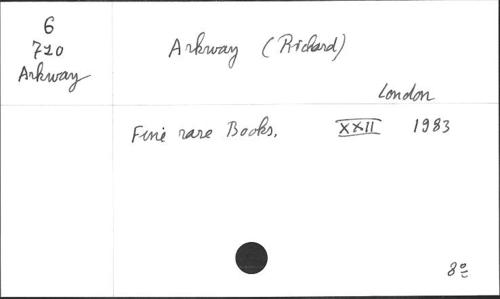 6
720
Arkway
Arkway (Richard)
London
Fine rare Books. XXII 1983
8º